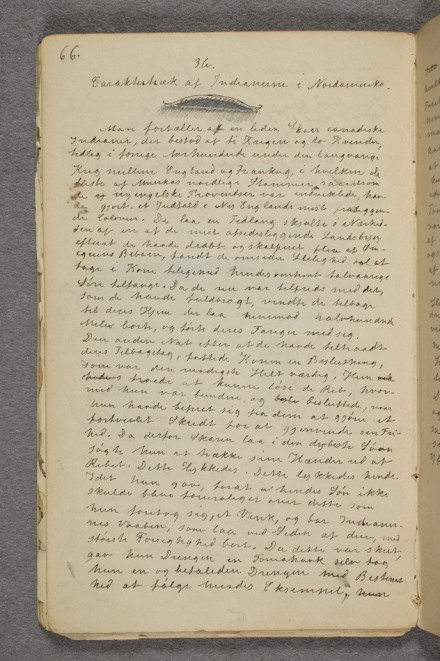 66.
36.
Caraktertræk af Indianerne i Nordamerika.
Man fortæller at en liden Skare canadiske
Indianer, der bestod af ti Krigere og to Kvinder,
tidlig i forrige Aarhundrede under den langvarige
Krig mellem England og Frankrig, i hvilken de
fleste af Amerikas nordlige Stammer saavelsom
de engelske Provindser var indviklede, hav-
de gjort et Indfald i Ny Englands mest
Colonier. De laa en Tidlang skjulte i Nærhed-
den af en af de mest afsidesliggende Landsbyer
efterat de havde dræbt og skalperet flere af
Beboere, fandt de omsider Leilighed til at
tage i Kone tilligemed hendes omtrent tolvaarige
Søn tilfange. Da de nu var tilfreds med det,
som de havde fuldbragt, vendte de tilbage
til deres Hjem der laa henimod halvhundrede
Mile borte, og førte deres Fanger med sig.
Den anden Nat efter at de havde tiltraadt
deres Tilbagetog, fattede Konen en Beslutning,
som var den modigste Helt værdig. Hun
troede at kunne løse de Reb, hvor-
med hun var bunden, og besluttede, naar
hun havde befriet sig fra dem at gjøre et
fortvivlet Skridt for at gjenvinde sin Fri-
hed. Da derfor Skaren laa i den dybeste Søvn
søgte hun at trække sine Hænder ud af
Rebet. Dette lykkedes. Dette lykkedes hende.
Idet hun gav, forat hendes Søn ikke
skulde blive forundret over dette som
hun foretog sig, et Vink, og bar Indianer-
nes Vaaben, som laa ved Siden af dem, med
største Forsigtighed bort. Da dette var skeet,
gav hun Drengen en Tomahawk selv tog
hun en og befalede Drengen med Bestemt-
hed at følge hendes Eksempel, hun